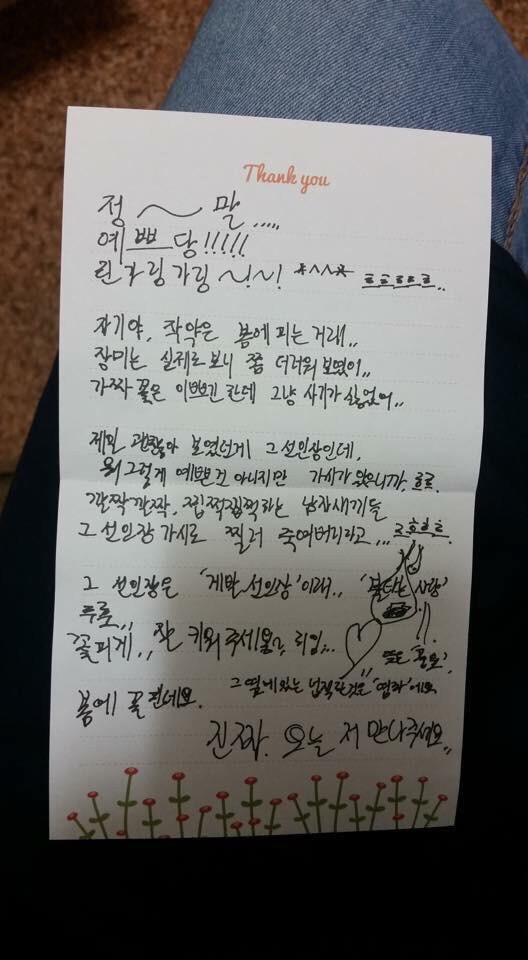 Thank you
정 ~ 말.....
예쁘당!!!!!
린가링가링 ~!~! *^^* ㅎㅎㅎㅎㅎ..
자기야, 작약은 봄에 피는 거래..
장미는 실제로 보니 쫌 더러워 보였어..
가짜 꽃은 이쁘긴 한데 그냥 사기가 싫었어..
제일 괜찮아 보였던게 그 선인장인데,
뭐 그렇게 예쁜건 아니지만 가시가 있으니까, ㅎㄹ.
깔짝깔짝, 찝적찝적하는 남자새끼들
그 선인장 가시로 찔러 죽여버리라고... ㅎㅎㅎ.
그 선인장은 '게발 선인장'이래.. '불타는 사랑'
꽃피게.. 잘 키워주세용?
그 옆에 있는 넙적한것은 에요
봄에 꽃 핀데요.
진짜. 오늘 저 만나주세요..